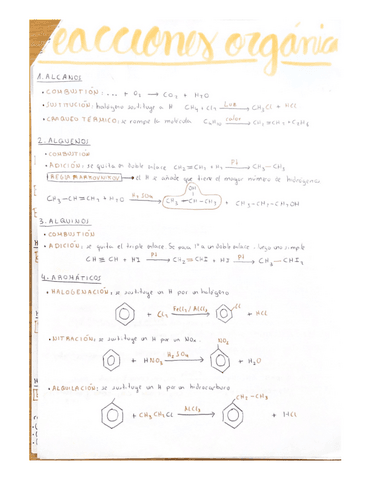 reacciones orgánica
1. ALCANOS
• COMBUSTIÓN: ... + O₂ → CO₂ + H₂O
• SUSTITUCIÓN: halógeno sustituye a H CH₄ + Cl₂ →(Luz) CH₃Cl + HCl
• CRAQUEO TÉRMICO: se rompe la molécula C₄H₁₀ →(calor) CH₂=CH₂ + C₂H₆
2. ALQUENOS
• COMBUSTIÓN
• ADICIÓN: se quita el doble enlace CH₂=CH₂ + H₂ →(Pt) CH₃-CH₃
REGLA MARKOVNIKOV → el H se añade que tiene el mayor número de hidrógenos
OH
CH₃-CH=CH₂ + H₂O →(H₂SO₄) CH₃-CH-CH₃ + CH₃-CH₂-CH₂OH
3. ALQUINOS
• COMBUSTIÓN
• ADICIÓN: se quita el triple enlace. Se pasa 1º a un doble enlace - luego uno simple
CH≡CH + HI →(Pt) CH₂=CHI + HI →(Pt) CH₃-CHI₂
4. AROMÁTICOS
• HALOGENACIÓN: se sustituye un H por un halógeno
+ Cl₂ →(FeCl₃/AlCl₃) Cl + HCl
• NITRACIÓN: se sustituye un H por un NO₂
+ HNO₃ →(H₂SO₄) NO₂ + H₂O
• ALQUILACIÓN: se sustituye un H por un hidrocarburo
+ CH₃CH₂Cl →(AlCl₃) CH₂-CH₃ + HCl